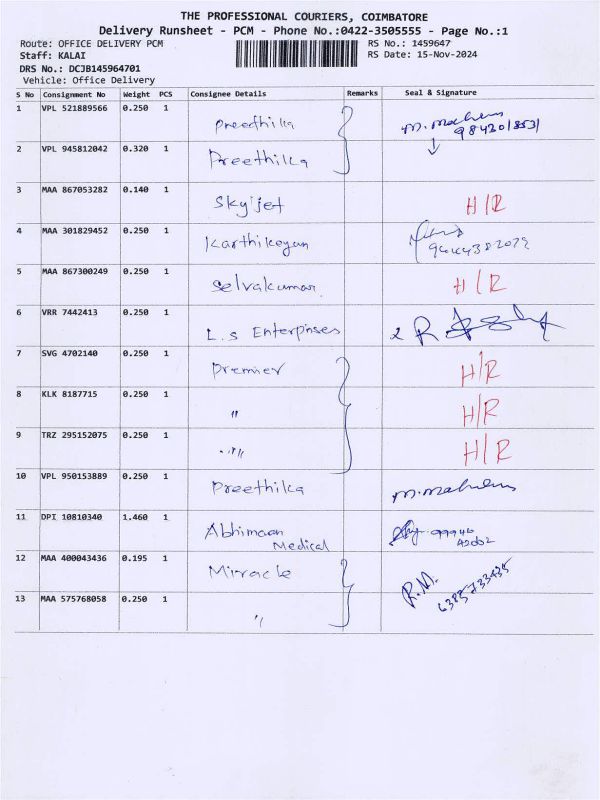 THE PROFESSIONAL COURIERS, COIMBATORE
Delivery Runsheet - PCM - Phone No.:0422-3505555 - Page No.:1
Route: OFFICE DELIVERY PCM
Staff: KALAI
DRS No.: DCJB145964701
Vehicle: Office Delivery
RS No.: 1459647
RS Date: 15-Nov-2024
S No Consignment No Weight PCS Consignee Details Remarks Seal & Signature
1 VPL 521889566 0.250 1 Preethika M. 9843018531
2 VPL 945812042 0.320 1 Preethika
3 MAA 867053282 0.140 1 Skyjet H/R
4 MAA 301829452 0.250 1 Karthikeyan
5 MAA 867300249 0.250 1 Selvakumar H/R
6 VRR 7442413 0.250 1 L.S Enterprises
7 SVG 4702140 0.250 1 Premier H/R
8 KLK 8187715 0.250 1 " H/R
9 TRZ 295152075 0.250 1 " H/R
10 VPL 950153889 0.250 1 Preethika
11 DPI 10810340 1.460 1 Abhimaan Medical 99946
12 MAA 400043436 0.195 1 Mirracle R.M.
13 MAA 575768058 0.250 1 "